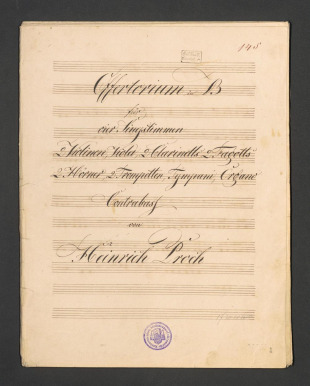 148
Offertorium in B
für
vier Singstimmen
2 Violinen, Viola, 2 Clarinetts, 2 Fagotts
2 Hörner, 2 Trompetten, Tympani, Organo
Contrabass
von
Heinrich Proch